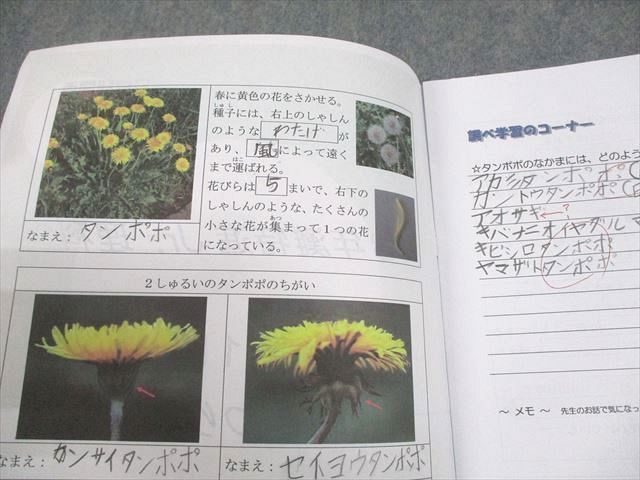 春に黄色の花をさかせる。
種子には、右上のしゃしん
のような わたげ が
あり、風 によって遠く
まで運ばれる。
花びらは 5 まいで、右下の
しゃしんのような、たくさんの
小さな花が集まって1つの花
になっている。
なまえ：タンポポ
2しゅるいのタンポポのちがい
なまえ：カンサイタンポポ
なまえ：セイヨウタンポポ
調べ学習のコーナー
☆タンポポのなかまには、どのよう
アカミタンポポ
カントウタンポポ
アオサギ←？
キバナニオイヤグルマ
キビシロタンポポ
ヤマザトタンポポ
～ メモ ～ 先生のお話で気になっ